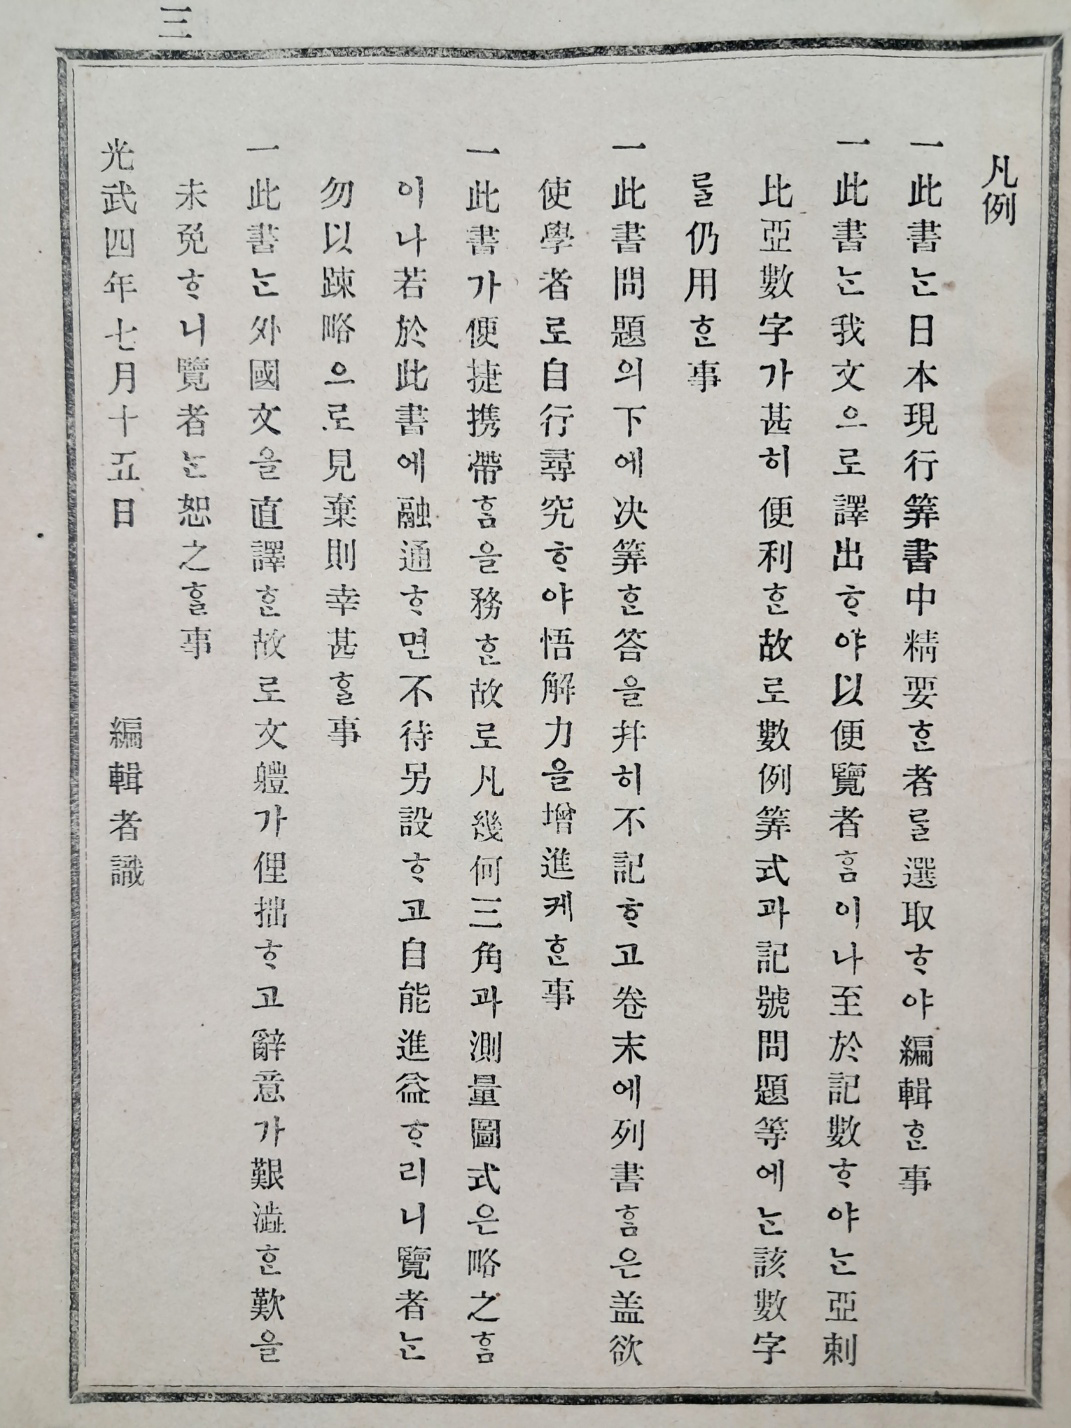 三
凡例
一此書ᄂᆞᆫ日本現行筭書中精要ᄒᆞᆫ者ᄅᆞᆯ選取ᄒᆞ야編輯ᄒᆞᆫ事
一此書ᄂᆞᆫ我文으로譯出ᄒᆞ야以便覽者ᄒᆞᆷ이나至於記數ᄒᆞ야ᄂᆞᆫ亞剌
比亞數字가甚히便利ᄒᆞᆫ故로數例筭式과記號問題等에ᄂᆞᆫ該數字
ᄅᆞᆯ仍用ᄒᆞᆫ事
一此書問題의下에决筭ᄒᆞᆫ答을幷히不記ᄒᆞ고卷末에列書ᄒᆞᆷ은盖欲
使學者로自行尋究ᄒᆞ야悟解力을增進케ᄒᆞᆫ事
一此書가便捷携帶ᄒᆞᆷ을務ᄒᆞᆫ故로凡幾何三角과測量圖式은略之ᄒᆞᆷ
이나若於此書에融通ᄒᆞ면不待另設ᄒᆞ고自能進益ᄒᆞ리니覽者ᄂᆞᆫ
勿以踈略으로見棄則幸甚ᄒᆞᆯ事
一此書ᄂᆞᆫ外國文을直譯ᄒᆞᆫ故로文軆가俚拙ᄒᆞ고辭意가艱澁ᄒᆞᆫ歎을
未免ᄒᆞ니覽者ᄂᆞᆫ恕之ᄒᆞᆯ事
光武四年七月十五日 編輯者識